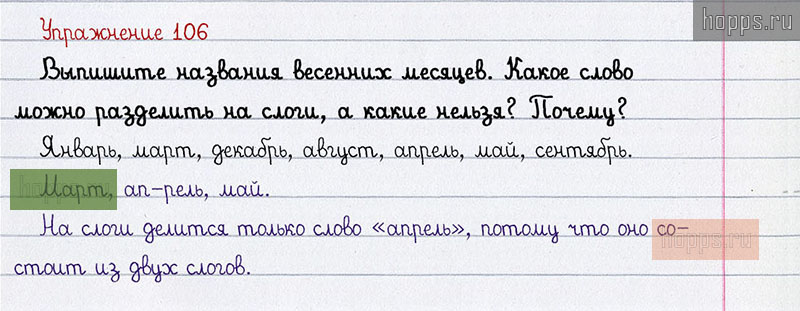 hopps.ru
Упражнение 106
Выпишите названия весенних месяцев. Какое слово
можно разделить на слоги, а какие нельзя? Почему?
Январь, март, декабрь, август, апрель, май, сентябрь.
Март, ап-рель, май.
На слоги делится только слово «апрель», потому что оно со-
hopps.ru
стоит из двух слогов.